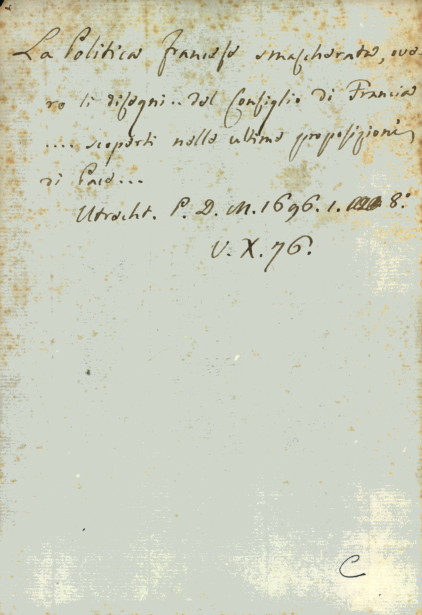 La Politica francese smascherata, ove-
ro li disegni.. del Consiglio di Francia
.... scoperti nelle ultime proposizioni
di Pace...
Utrecht. P. D. M. 1696. 1. 8.°
V. X. 76.
C